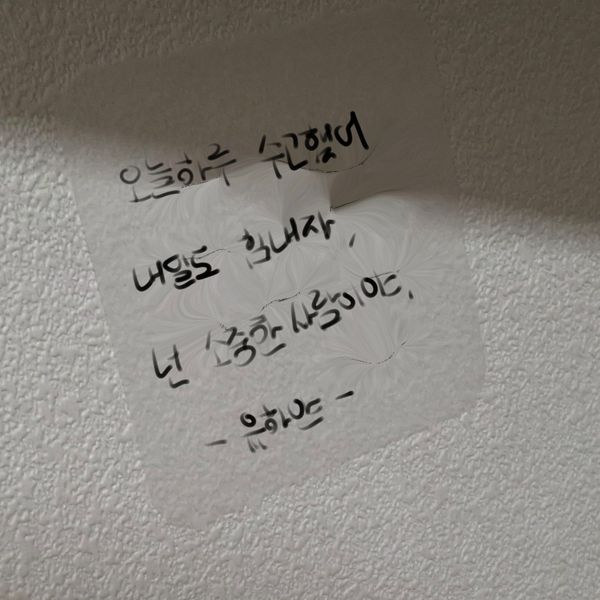 오늘하루 수고했어
내일도 힘내자,
넌 소중한 사람이야.